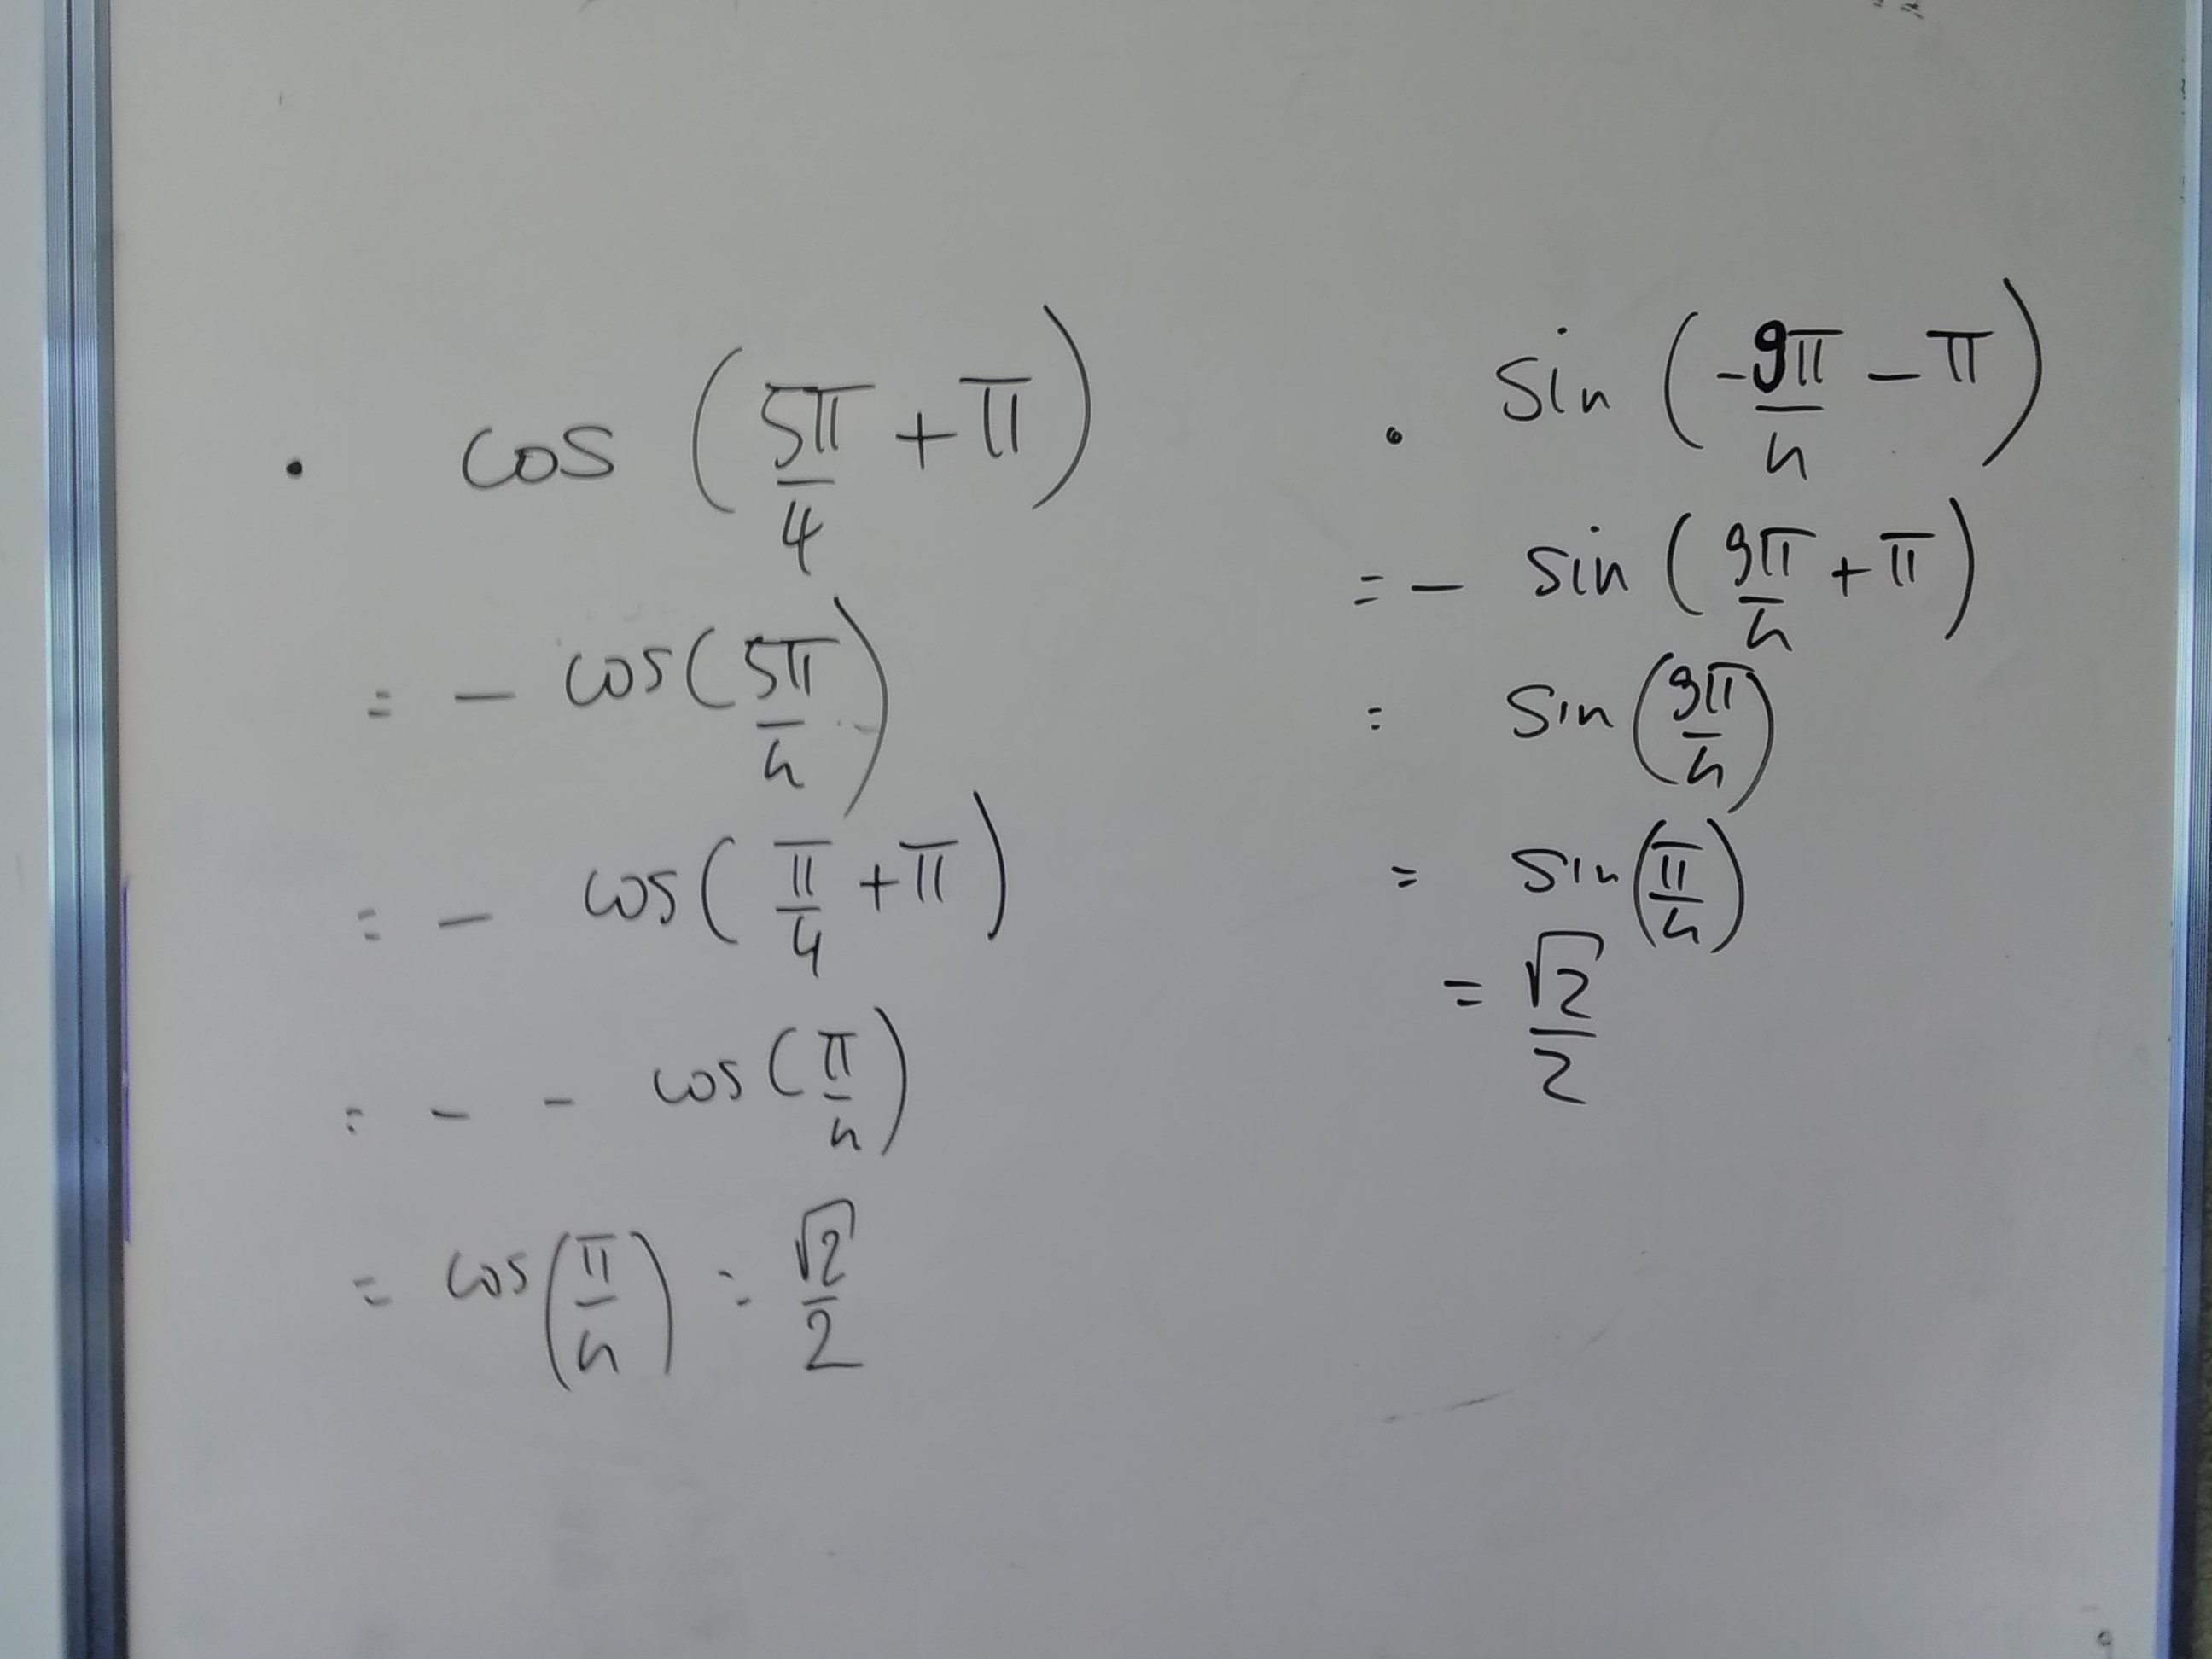 • cos (5π/4 + π)
= - cos (5π/4)
= - cos (π/4 + π)
= - - cos (π/4)
= cos (π/4) = √2/2
• sin (-9π/4 - π)
= - sin (9π/4 + π)
= sin (9π/4)
= sin (π/4)
= √2/2